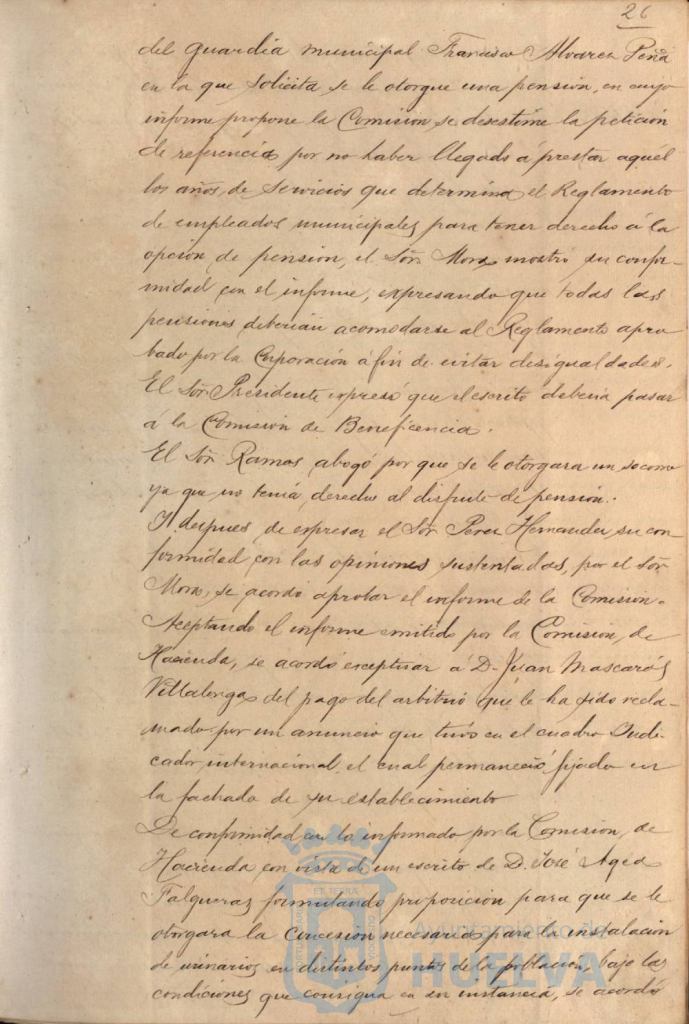 26
del guardia municipal Francisco Alvarez Peña
en la que solicita se le otorgue una pensión, en cuyo
informe propone la Comision se desestime la petición
de referencia por no haber llegado á prestar aquél
los años de servicios que determina el Reglamento
de empleados municipales para tener derecho á la
opción de pensión, el Sor. Mora mostró su confor-
midad con el informe, expresando que todas las
pensiones deberían acomodarse al Reglamento apro
bado por la Corporación á fin de evitar desigualdades.
El Sor. Presidente expresó que el escrito debería pasar
á la Comisión de Beneficencia.
El Sor. Ramos abogó por que se le otorgara un socorro
ya que no tenía derecho al disfrute de pensión.
Y despues de expresar el Sor. Perez Hernandez su con
formidad con las opiniones sustentadas, por el Sor.
Mora, se acordó aprobar el informe de la Comision.
Aceptando el informe emitido por la Comision, de
Hacienda, se acordó exceptuar á D. Juan Mascarós
Villalonga del pago del arbitrio que le ha sido recla-
mado por un anuncio que tuvo en el cuadro Indi-
cador internacional, el cual permaneció fijado en
la fachada de su establecimiento
De conformidad con lo informado por la Comision, de
Hacienda, con vista de un escrito de D. José Agea
Falgueras formulando proposicion para que se le
otorgara la concesion necesaria para la instalación
de urinarios en distintos puntos de la poblacion, bajo las
condiciones que consigna en su instancia, se acordó
ET TERRA
Ayuntamiento de
HUELVA